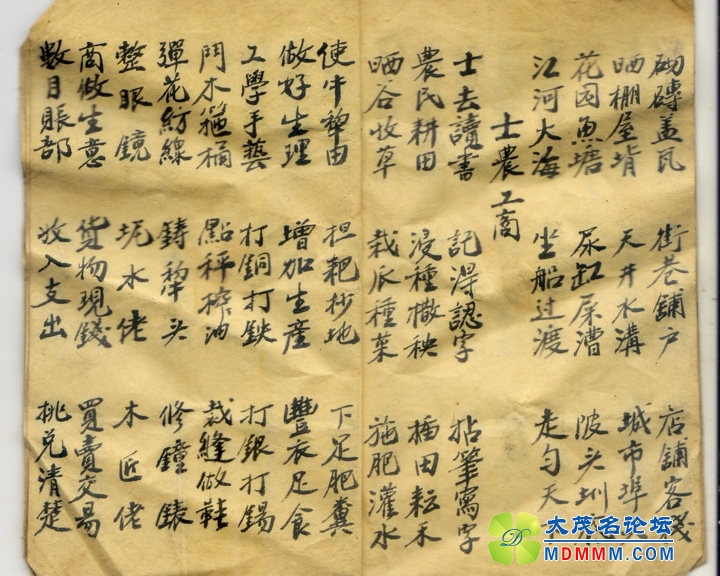 砌磚盖瓦 街巷舖户 店舖客栈
晒棚屋 天井水溝 城市埠
花园魚塘 尿缸屎漕 陂头圳
江河大海 坐船过渡 走匀天
士農工商
士去讀書 記得認字 拈筆寫字
農民耕田 浸種撒秧 插田耘禾
晒谷收草 栽瓜種菜 施肥灌水
使牛犁田 担耙抄地 下足肥糞
做好生理 增加生産 豐衣足食
工學手藝 打銅打鉄 打銀打錫
鬥木箍桶 點秤榨油 裁縫做鞋
彈花紡線 鋳犁头 修鐘錶
整眼鏡 坭水佬 木匠佬
商做生意 貨物現錢 買賣交易
數目賬部 收入支出 挑兑清楚
大茂名论坛
MDMMM.COM